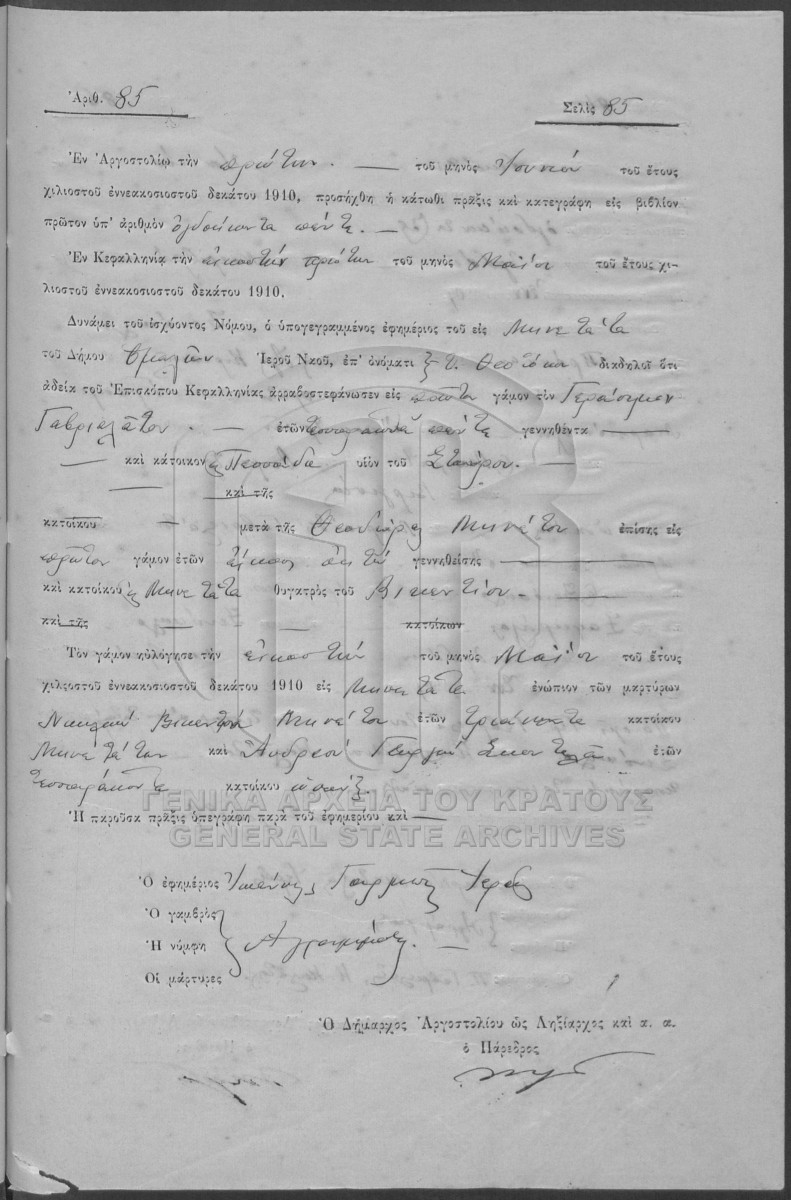 Ἀριθ. 85
Σελὶς 85
Ἐν Ἀργοστολίῳ τὴν πρώτην. — τοῦ μηνὸς Ἰουνίου τοῦ ἔτους
χιλιοστοῦ ἐννεακοσιοστοῦ δεκάτου 1910, προσήχθη ἡ κάτωθι πρᾶξις καὶ κατεγράφη εἰς βιβλίον
πρῶτον ὑπ' ἀριθμὸν ὀγδοήκοντα πέντε. —
Ἐν Κεφαλληνίᾳ τὴν εἰκοστήν πρώτην τοῦ μηνὸς Μαΐου τοῦ ἔτους χι-
λιοστοῦ ἐννεακοσιοστοῦ δεκάτου 1910,
Δυνάμει τοῦ ἰσχύοντος Νόμου, ὁ ὑπογεγραμμένος ἐφημέριος τοῦ εἰς Μηνετάτα
τοῦ Δήμου Ὁμαλῶν Ἱεροῦ Ναοῦ, ἐπ' ὀνόματι Θεοτόκου διαδηλοῖ ὅτι
ἀδείᾳ τοῦ Ἐπισκόπου Κεφαλληνίας ἀρραβοστεφάνωσεν εἰς πρῶτον γάμον τὸν Γεράσιμον
Γαβριελᾶτον. — ἐτῶν τεσσαράκοντα πέντε γεννηθέντα —
— καὶ κάτοικον Πεσσάδα υἱὸν τοῦ Σταύρου. —
— καὶ τῆς
κατοίκου — μετὰ τῆς Θεοδώρας Μηνάτου ἐπίσης εἰς
πρῶτον γάμον ἐτῶν εἴκοσι ὀκτώ γεννηθείσης —
καὶ κατοίκου Μηνετάτα θυγατρὸς τοῦ Βικεντίου. —
καὶ τῆς — — κατοίκων
Τὸν γάμον ηὐλόγησε τὴν εἰκοστήν τοῦ μηνὸς Μαΐου τοῦ ἔτους
χιλιοστοῦ ἐννεακοσιοστοῦ δεκάτου 1910 εἰς Μηνετάτα ἐνώπιον τῶν μαρτύρων
Μηνάτου ἐτῶν τριάκοντα κατοίκου
Μηνετάτων καὶ Ἀνδρέου ἐτῶν
τεσσαράκοντα κατοίκου
Ἡ παροῦσα πρᾶξις ὑπεγράφη παρὰ τοῦ ἐφημερίου καὶ —
ΓΕΝΙΚΑ ΑΡΧΕΙΑ ΤΟΥ ΚΡΑΤΟΥΣ
GENERAL STATE ARCHIVES
Ὁ ἐφημέριος
Ὁ γαμβρὸς
Ἡ νύμφη Ἀγράμματοι. —
Οἱ μάρτυρες
Ὁ Δήμαρχος Ἀργοστολίου ὡς Ληξίαρχος καὶ α. α.
ὁ Πάρεδρος